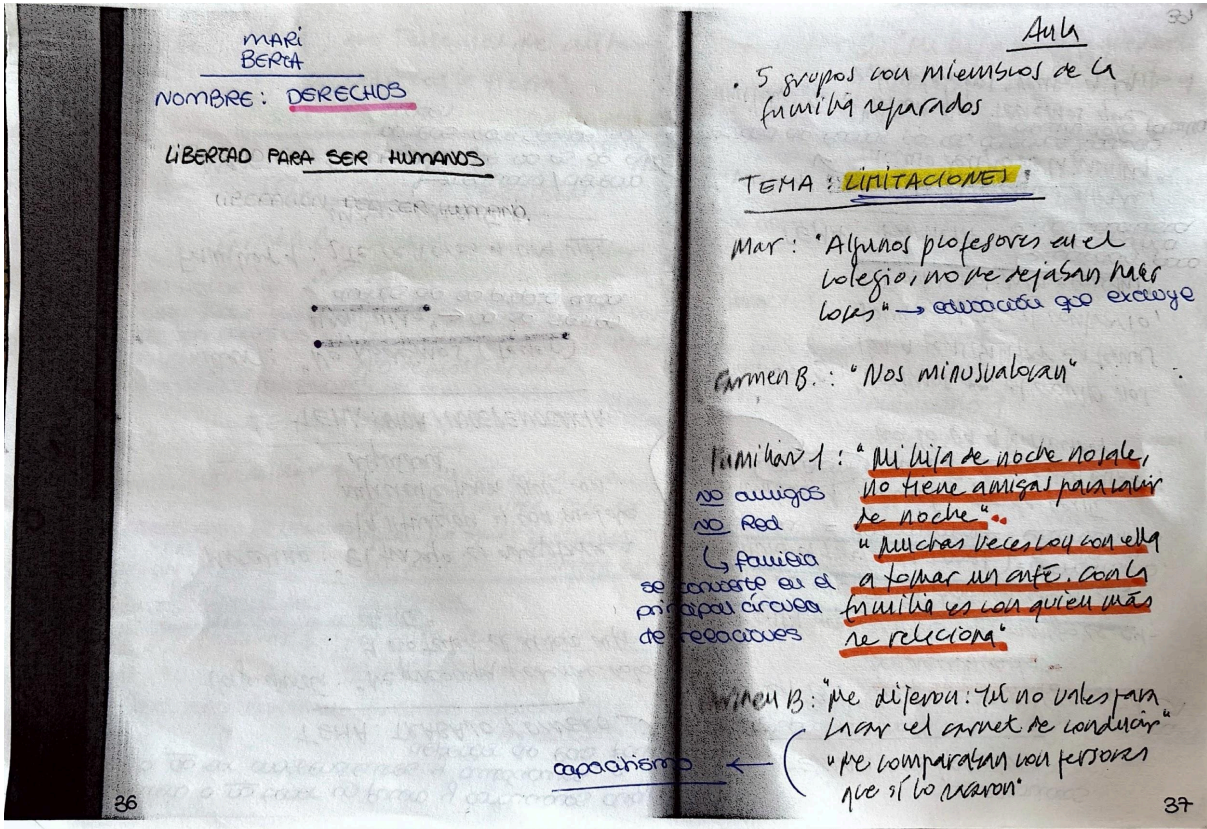 MARI
BERTA
NOMBRE: DERECHOS
LIBERTAD PARA SER HUMANOS
36
Aula
. 5 grupos con miembros de la
familia separados
TEMA: LIMITACIONES:
Mar: "Algunos profesores en el
colegio, no me dejaban hacer
cosas" → educación que excluye
Carmen B.: "Nos minusvaloran"
Familiar 1: "Mi hija de noche no sale,
no tiene amigas para salir
de noche"..
"Muchas veces voy con ella
a tomar un café. Con la
familia es con quien más
se relaciona"
no amigos
no Red
↳ familia
se convierte en el
principal círculo
de relaciones
Carmen B: "Me dijeron: Tú no vales para
sacar el carnet de conducir"
"Me comparaban con personas
que sí lo sacaron"
capacitismo ←
37